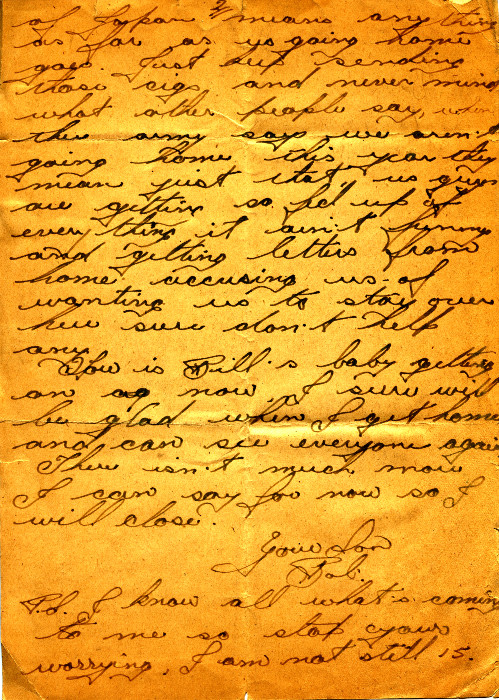 2/
of Japan means any thing
as far as us going home
goes. Just keep sending
those cigs and never mind
what other people say, when
the army says we aren't
going home this year they
mean just that, us guys
are getting so fed up of
every thing it ain't funny
and getting letters from
home accusing us of
wanting us to stay over
here sure don't help
any.
How is Bill's baby getting
on ag now. I sure will
be glad when I get home
and can see everyone again
There isn't much more
I can say for now so I
will close.
Your Son
Bob.
P.S. I know all what's coming
to me so stop your
worrying, I am not still 15.